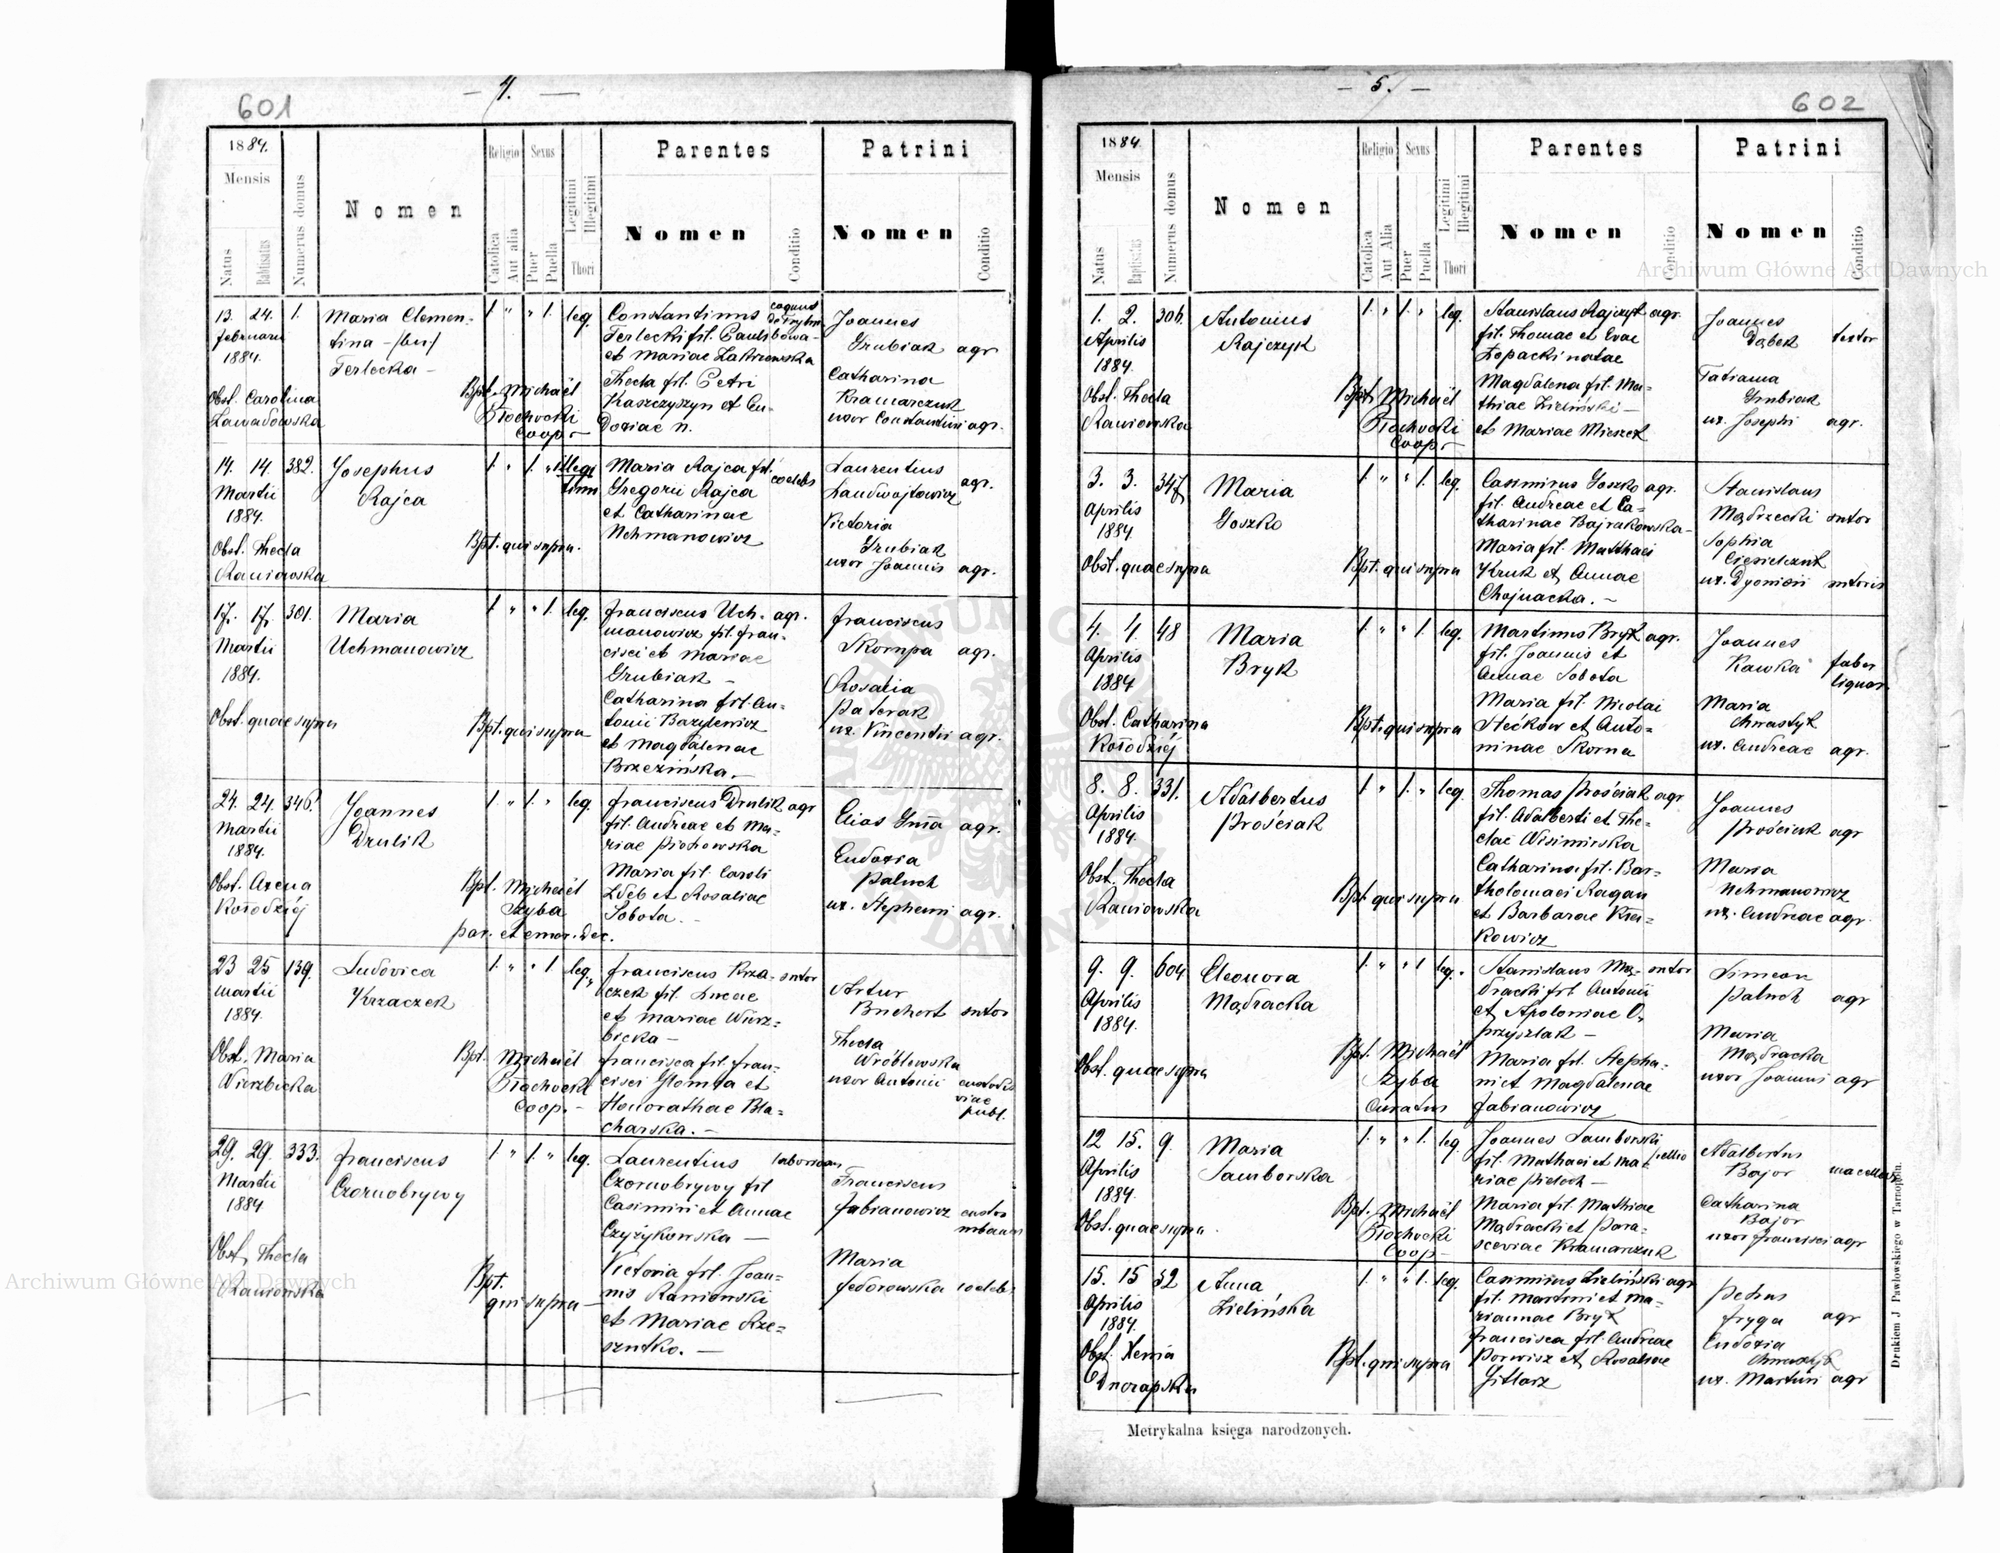 601
— 4. —
1884.
Mensis
Natus
Babtisatus
Numerus domus
Nomen
Religio
Catolica
Aut alia
Sexus
Puer
Puella
Legitimi
Illegitimi
Thori
Parentes
Nomen
Conditio
Patrini
Nomen
Conditio
13. 24. 1.
februarii
1884.
Obst. Carolina
Zawadowska
Maria Clemen-
tina
Terlecka —
1. " " 1. leg.
Bpt. Michaël
Błochocki
Coop. —
Constantinus
Terlecki fil. Pauli
et Mariae Zakrzewska
Thecla fil. Petri
Kaszczyszyn et Eu-
doxiae n.
Joannes
Grubiak agr
Catharina
Kramarczuk
uxor Constantini agr.
14. 14. 382.
Martii
1884.
Obst. Thecla
Raniowska
Josephus
Rajca
1. " 1. " illegi
timi
Bpt. qui supra.
Maria Rajca fil.
Gregorii Rajca
et Catharinae
Uchmanowicz
coelebs
Laurentius
Landwojtowicz agr.
Victoria
Grubiak
uxor Joannis agr.
17. 17. 301.
Martii
1884.
Obst. quae supra
Maria
Uchmanowicz
1. " " 1. leg.
Bpt. qui supra
franciscus Uch- agr.
manowicz fil. fran-
cisci et Mariae
Grubiak —
Catharina fil. An-
tonii Bazylewicz
et Magdalenae
Brzezińska. —
franciscus
Skompa agr.
Rosalia
Paterak
ux. Vincentii agr.
24. 24. 346.
Martii
1884.
Obst. Axena
Kołodziéj
Joannes
Drulik
1. " 1. " leg
Bpt. Michaël
Szyba
par. et emer. Dec.
franciscus Drulik agr
fil. Andreae et Ma-
riae Piotrowska
Maria fil. Caroli
Zdeb et Rosaliae
Sobota. —
Elias Gma agr.
Eudoxia
Paluch
ux. Stephani agr.
23 25 139.
Martii
1884.
Obst. Maria
Wierzbicka
Ludovica
Krzaczek
1. " " 1 leg.
Bpt. Michaël
Błochocki
Coop. —
franciscus Krza- sutor
czek fil. Lucae
et Mariae Wierz-
bicka —
francisca fil. fran-
cisci Glomba et
Honorathae Bla-
charska. —
Artur
Buchort sutor
Thecla
Wróblewska
uxor Antonii custodis
viae
publ.
29. 29. 333.
Martii
1884
Obst. Thecla
Raniowska
franciscus
Czornobrywy
1. " 1. " leg.
Bpt.
qui supra —
Laurentius
Czornobrywy fil
Casimiri et Annae
Czyżykowska —
Victoria fil. Joan-
nis Raniowski
et Mariae Rze-
szutko. —
Franciscus
fabianowicz custos
Maria
fedorowska coelebs
602
— 5. —
1884
Mensis
Natus
Baptisatus
Numerus domus
Nomen
Religio
Catolica
Aut Alia
Sexus
Puer
Puella
Legitimi
Illegitimi
Thori
Parentes
Nomen
Conditio
Patrini
Nomen
Conditio
1. 2. 306.
Aprilis
1884.
Obst. Thecla
Raniowska
Antonius
Rajczyk
1. " 1. " leg.
Bpt. Michaël
Błochocki
Coop —
Stanislaus Rajczyk agr.
fil. Thomae et Evae
Łopacki natae
Magdalena fil. Ma-
thiae Zieliński —
et Mariae Mieszek
Joannes
Dąbek textor
Tatiana
Grubiak
ux. Josephi agr.
3. 3. 347
Aprilis
1884.
Obst. quae supra
Maria
Goszko
1. " " 1. leg.
Bpt. qui supra
Casimirus Goszko agr.
fil. Andreae et Ca-
tharinae Bajrakowska —
Maria fil. Matthaei
Kruk et Annae
Chojnacka. —
Stanislaus
Mądrzecki sutor
Sophia
ux. Dyonisii sutoris
4. 4. 48
Aprilis
1884
Obst. Catharina
Kołodziéj
Maria
Bryk
1. " " 1. leg.
Bpt. qui supra
Martinus Bryk agr.
fil. Joannis et
Annae Sobota
Maria fil. Nicolai
Stećków et Anto-
ninae Skorna
Joannes
Kawka faber
lignar.
Maria
Chwastyk
ux. Andreae agr.
8. 8. 331.
Aprilis
1884.
Obst. Thecla
Raniowska
Adalbertus
Prościak
1. " 1. " leg.
Bpt. qui supra
Thomas Prościak agr
fil. Adalberti et The-
clae Wisimirska
Catharina fil. Bar-
tholomaei Ragan
et Barbarae Kra-
kowicz
Joannes
Prościak agr
Maria
Uchmanowicz
ux. Andreae agr.
9. 9. 604
Aprilis
1884.
Obst. quae supra
Eleonora
Mądracka
1. " " 1 leg.
Bpt. Michaël
Szyba
Curatus
Stanislaus Mą- sutor
dracki fil. Antonii
et Apoloniae O-
przyszlak —
Maria fil. Stepha-
ni et Magdalenae
fabianowicz
Simeon
Paluch agr
Maria
Mądracka
uxor Joannis agr
12 15. 9.
Aprilis
1884.
Obst. quae supra.
Maria
Samborska
1. " " 1. leg
Bpt. Michaël
Błochocki
Coop —
Joannes Samborski
fil. Mathaei et Ma- pellio
riae Pieloch —
Maria fil. Mathiae
Mądracki et Para-
sceviae Kramarczuk
Adalbertus
Bajor macellar
Catharina
Bajor
uxor francisci agr
15. 15 52
Aprilis
1884.
Obst. Xenia
Anna
Zielińska
1. " " 1. leg.
Bpt. qui supra
Casimirus Zieliński agr
fil. Martini et Ma-
riannae Bryk
francisca fil. Andreae
Porwisz et Rosaliae
Gitlarz
Petrus
fryga agr
Eudoxia
ux. Martini agr
Metrykalna księga narodzonych.
Drukiem J Pawłowskiego w Tarnopolu.
Archiwum Główne Akt Dawnych
Archiwum Główne Akt Dawnych